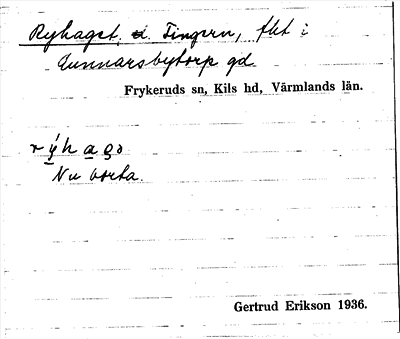 Ryhaget, d. Tingvrn, flt i
Gunnarsbytorp gd.
Frykeruds sn, Kils hd, Värmlands län.
rýhago
Nu borta.
Gertrud Erikson 1936.